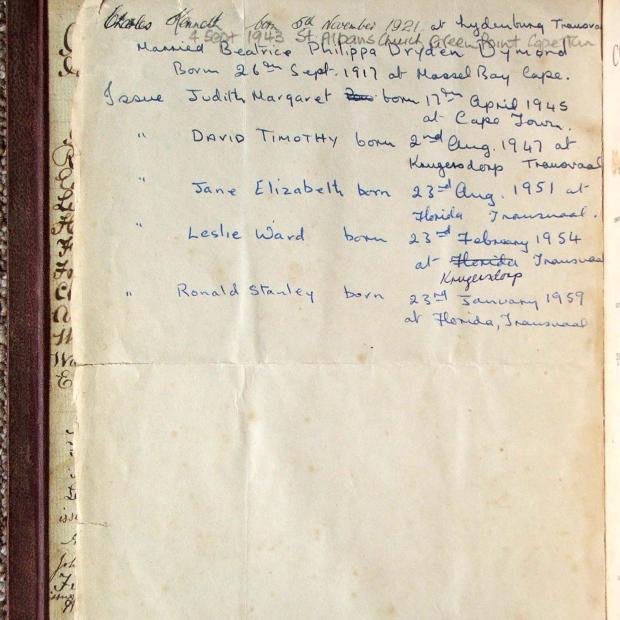 Charles Kenneth born 5th November 1921 at Lydenburg Transvaal
4 Sept 1943 St Albans Church Green Point Cape Tn
Married Beatrice Philippa Dryden Dymond
Born 26th Sept. 1917 at Mossel Bay Cape.
Issue Judith Margaret born 17th April 1945
at Cape Town.
" DAVID TIMOTHY born 2nd Aug. 1947 at
Krugersdorp Transvaal
" Jane Elizabeth born 23rd Aug. 1951 at
Florida Transvaal.
" Leslie Ward born 23rd February 1954
at Florida Transvaal
Krugersdorp
" Ronald Stanley born 23rd January 1959
at Florida, Transvaal